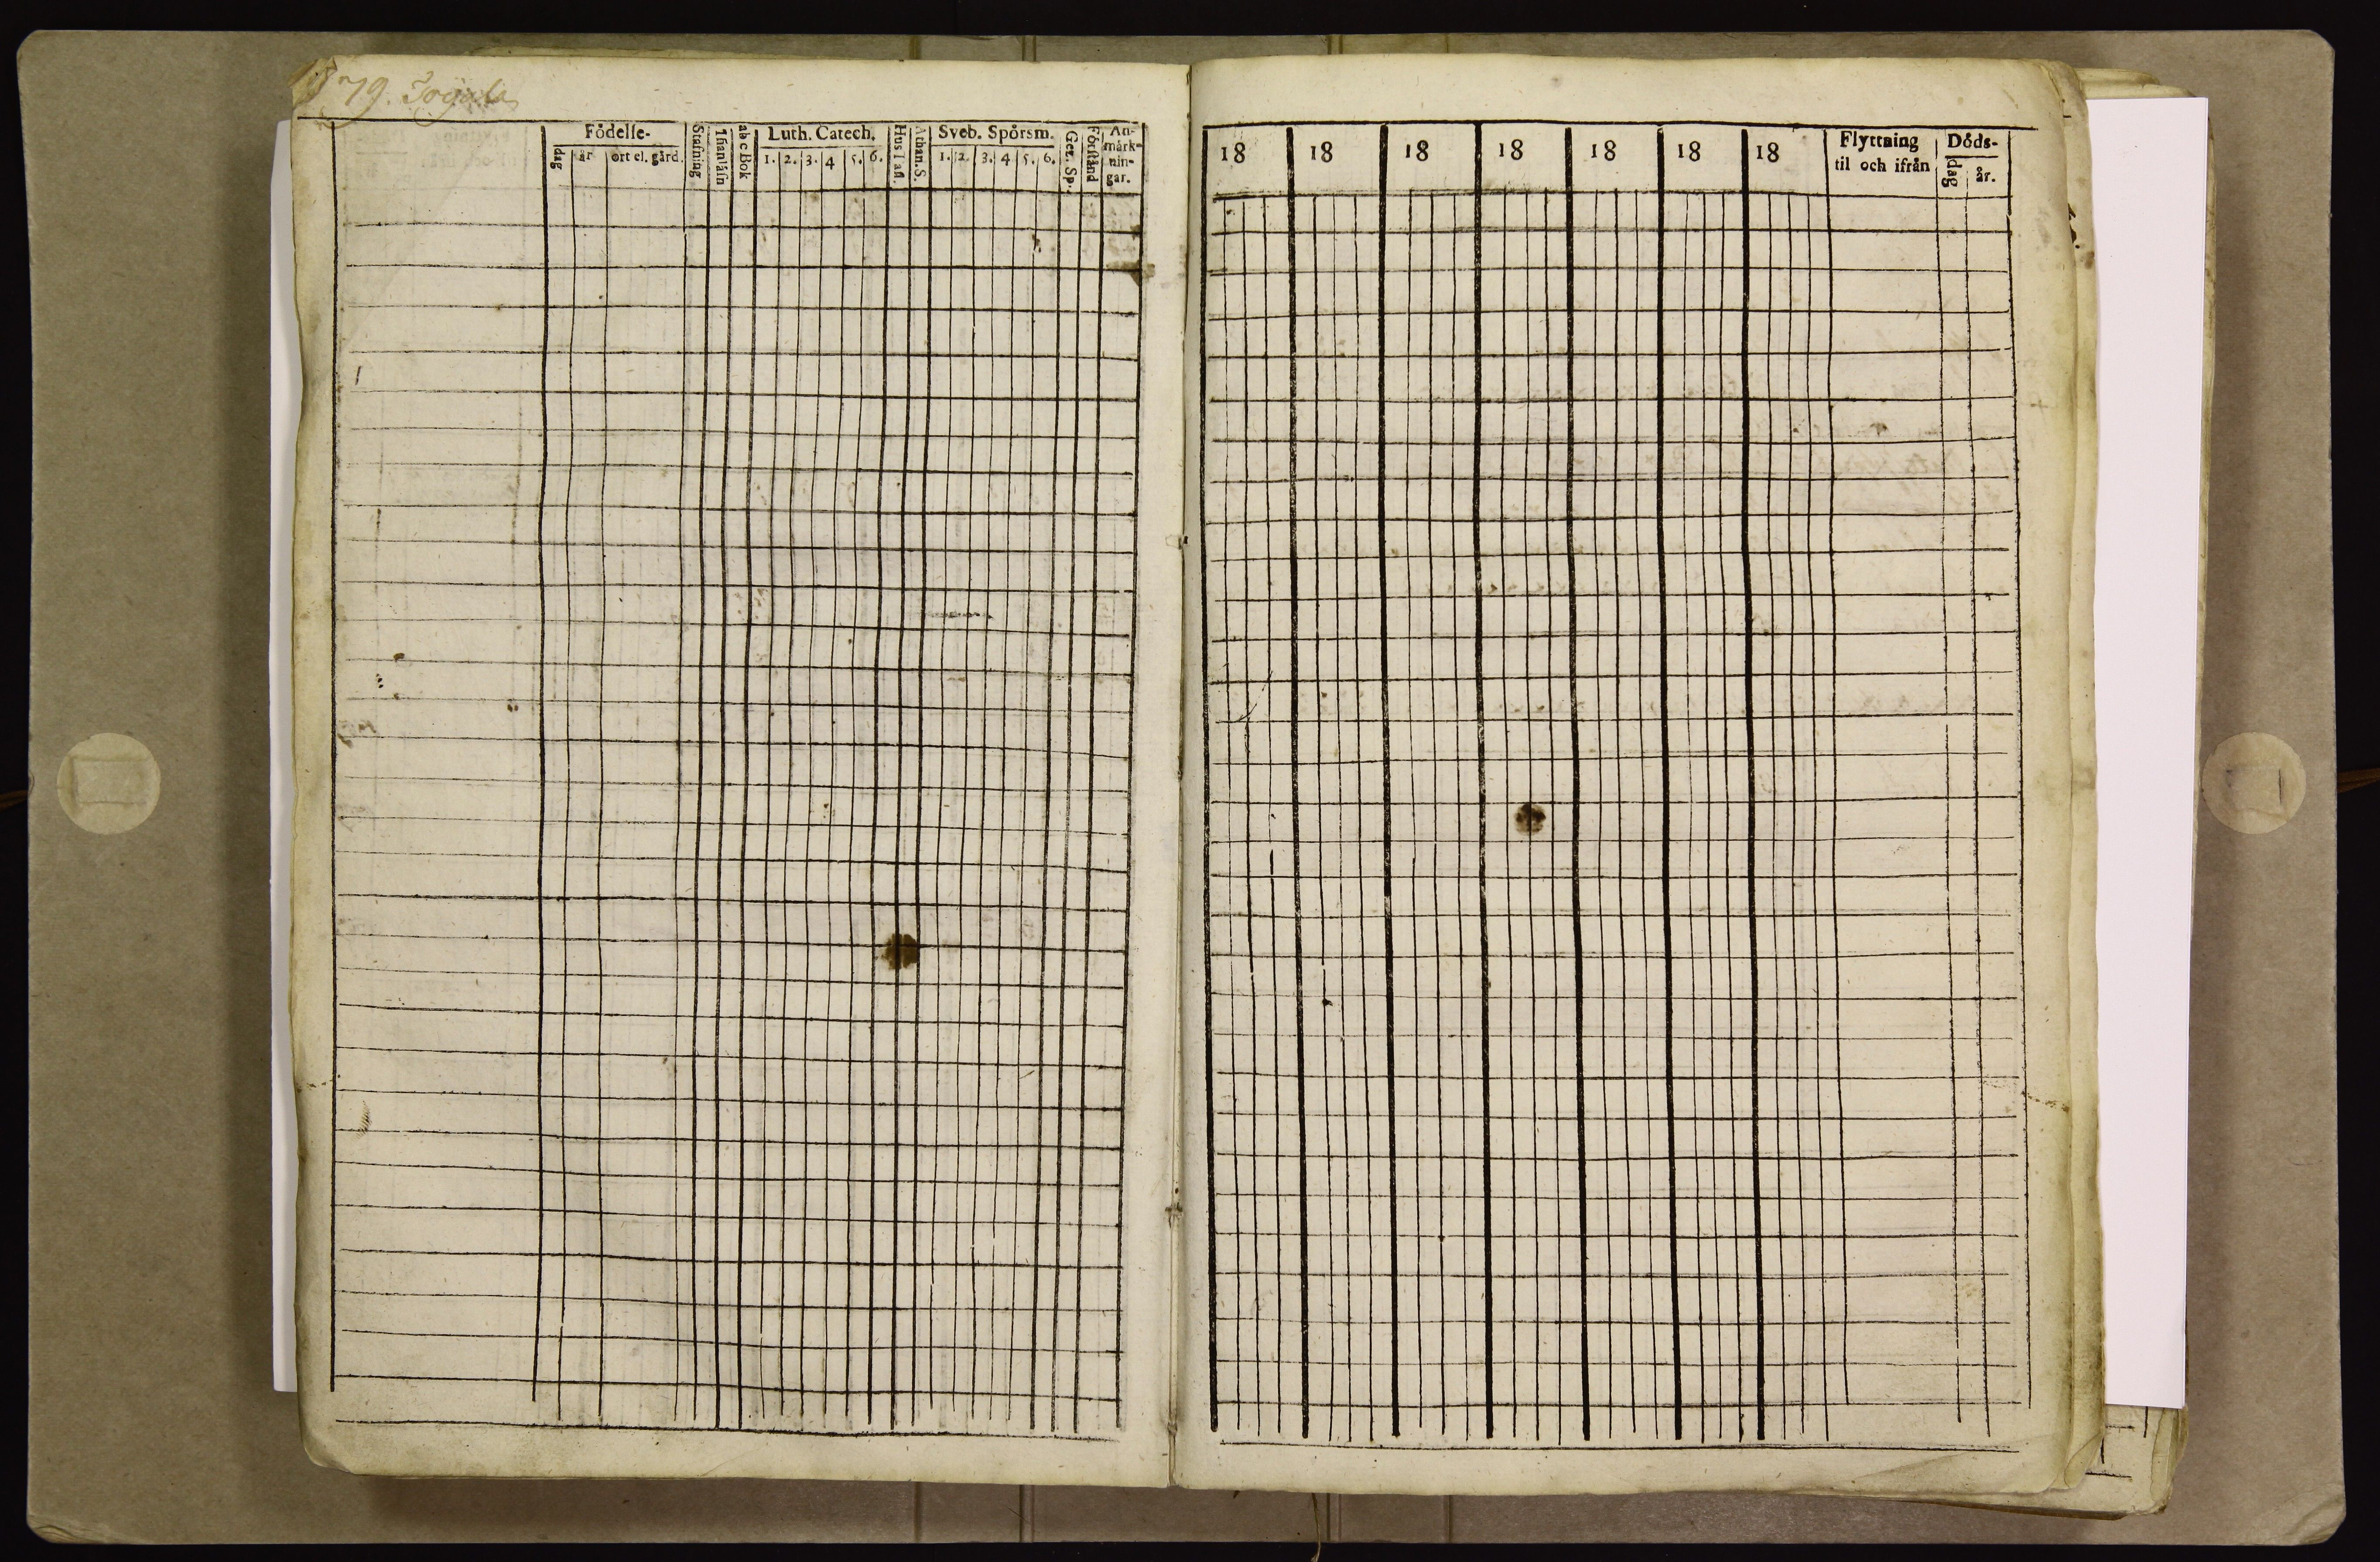 79. Jogula
Födelse-
dag år ort el. gård.
Stafning
Innanläsn
abc Bok
Luth. Catech.
1. 2. 3. 4 5. 6.
Hus Tafl.
Athan. S.
Sveb. Spörsm.
1. 2. 3. 4 5. 6.
Gez. Sp.
Förstånd
An-
märk-
nin-
gar.
18 18 18 18 18 18 18
Flyttning
til och ifrån
Döds-
dag år.